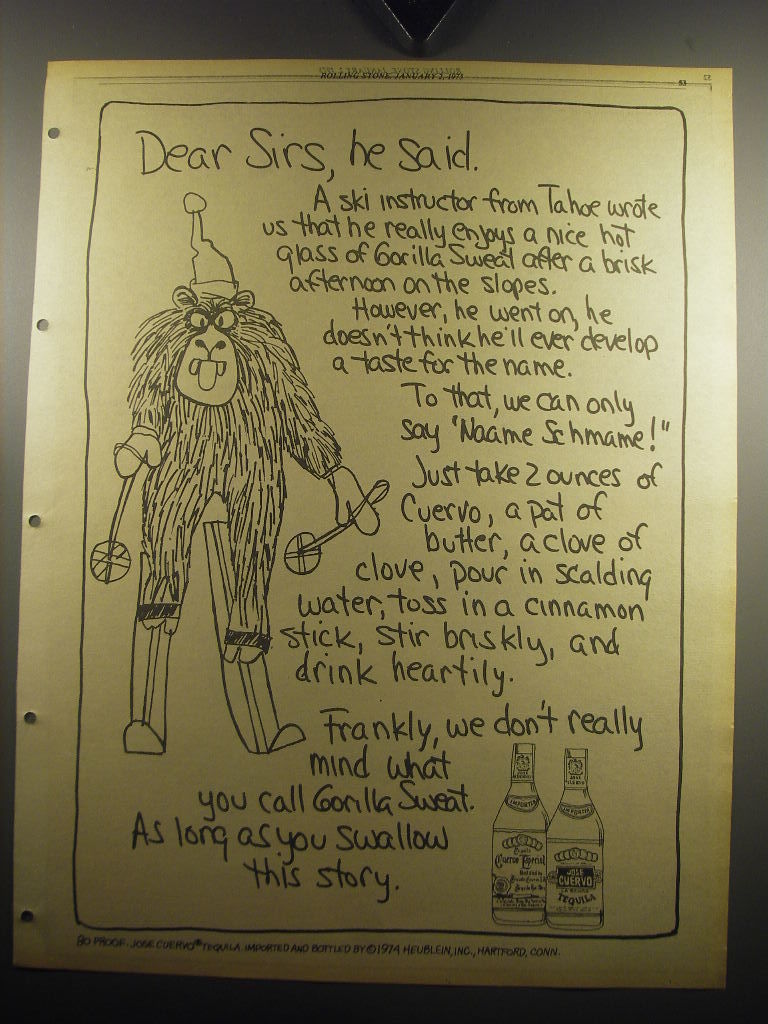 ROLLING STONE, JANUARY 2, 1975
53
Dear Sirs, he said.
A ski instructor from Tahoe wrote
us that he really enjoys a nice hot
glass of Gorilla Sweat after a brisk
afternoon on the slopes.
However, he went on, he
doesn't think he'll ever develop
a taste for the name.
To that, we can only
say "Naame Schmame!"
Just take 2 ounces of
Cuervo, a pat of
butter, a clove of
clove, pour in scalding
water, toss in a cinnamon
stick, stir briskly, and
drink heartily.
Frankly, we don't really
mind what
you call Gorilla Sweat.
As long as you swallow
this story.
IMPORTED
Cuervo Especial
IMPORTED
JOSE
CUERVO
TEQUILA
80 PROOF. JOSE CUERVO® TEQUILA. IMPORTED AND BOTTLED BY © 1974 HEUBLEIN, INC., HARTFORD, CONN.